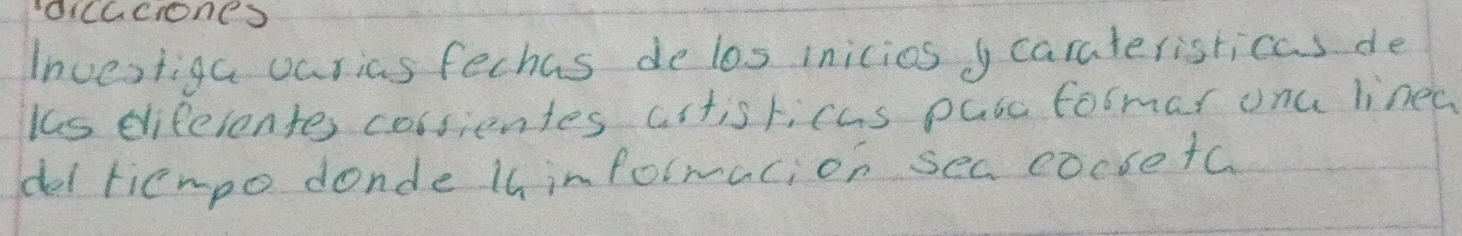 Indicaciones
Investiga varias fechas de los inicios y carateristicas de
las diferentes corrientes artisticas para formar una linea
del tiempo donde la imformación sea cocreta